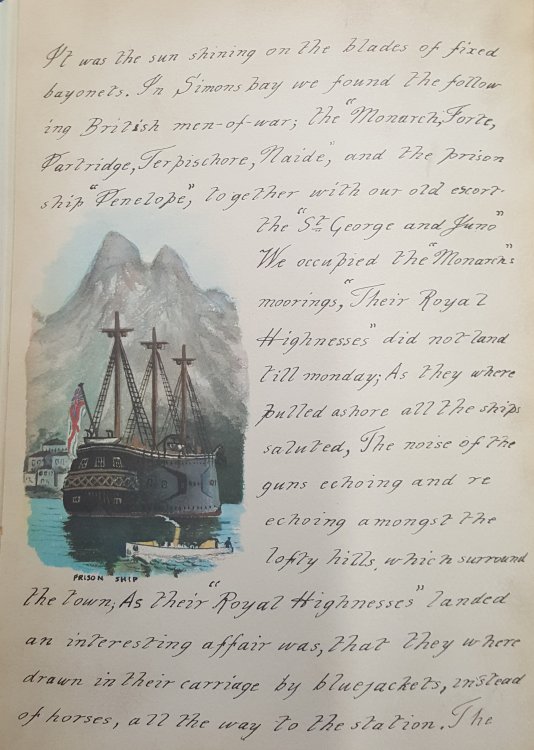 It was the sun shining on the blades of fixed
bayonets. In Simons bay we found the follow
ing British men-of-war; the "Monarch, Forte,
Partridge, Terpischore, Naide," and the prison
ship "Penelope," together with our old escort-
the "St George and Juno"
We occupied the "Monarch"s
moorings, "Their Royal
Highnesses" did not land
till monday; As they where
pulled ashore all the ships
saluted, The noise of the
guns echoing and re
echoing amongst the
lofty hills, which surround
PRISON SHIP
the town; As their "Royal Highnesses" landed
an interesting affair was, that they where
drawn in their carriage by bluejackets, instead
of horses, all the way to the station. The